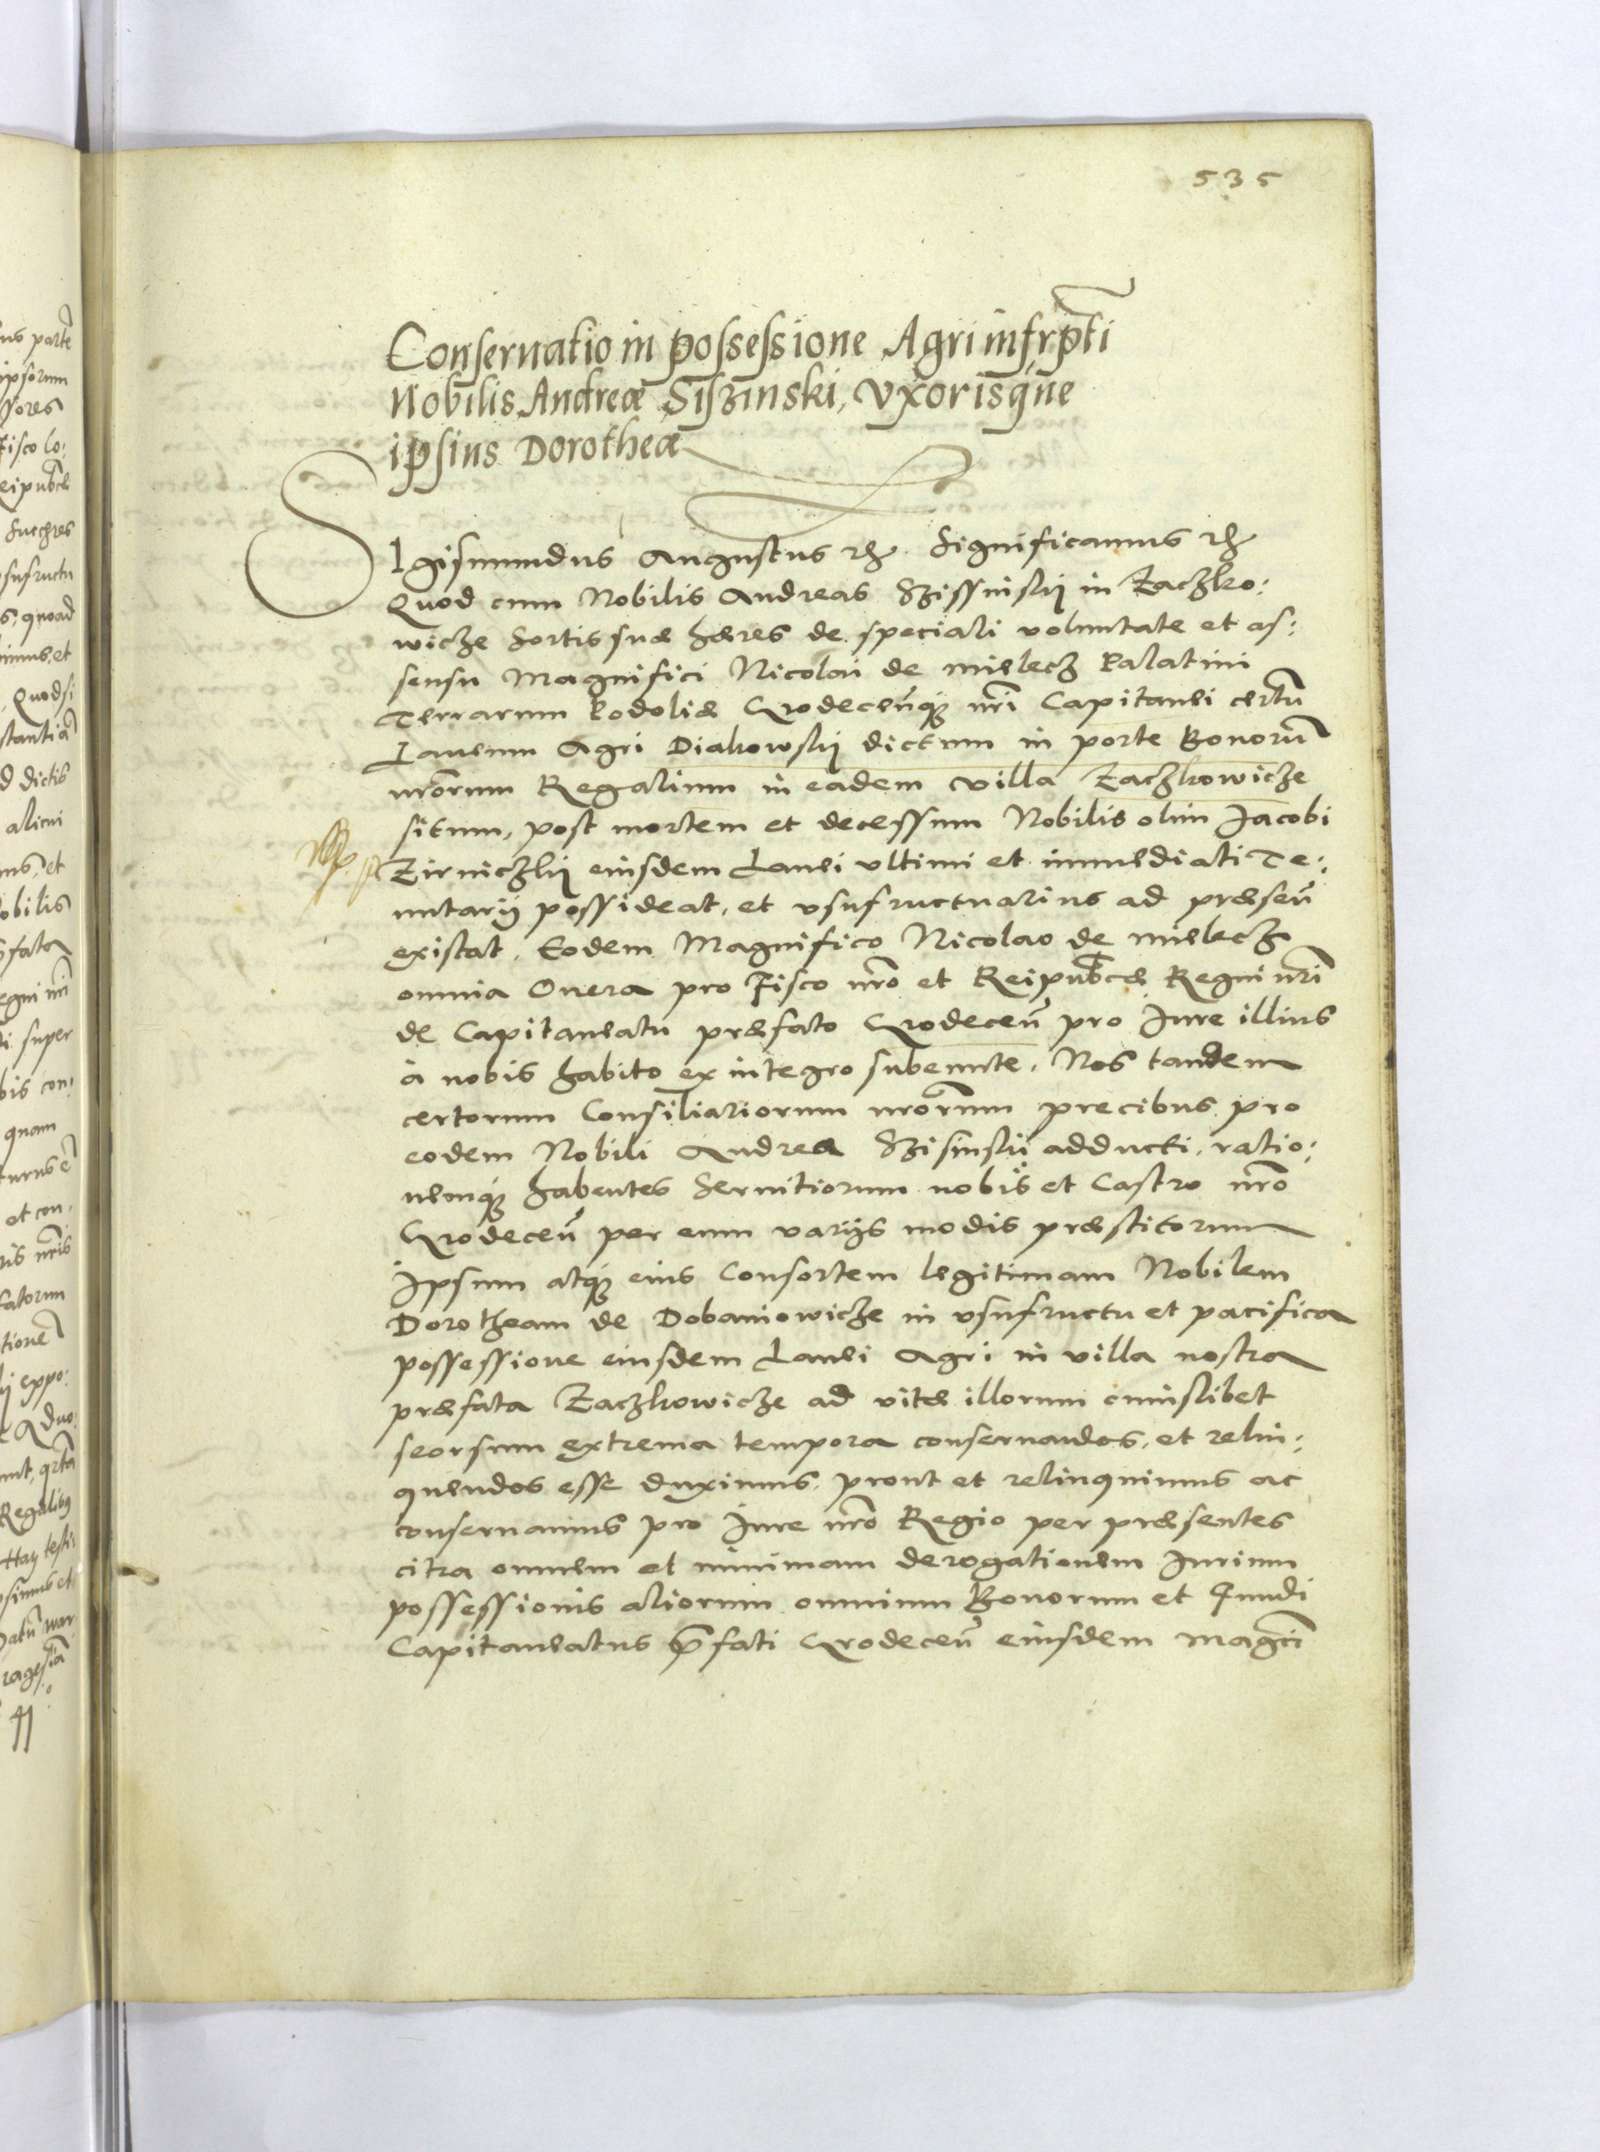 535
Conseruatio in possessione Agri infrpti
Nobilis Andreæ Siszinski, Vxorisque
ipsius Dorotheæ
Sigismundus Augustus etc. Significamus etc.
Quod cum Nobilis Andreas Szissinskÿ in Zaczko:
wicze sortis suæ hæres de speciali voluntate et as:
sensu Magnifici Nicolai de Mielecz Palatini
Terrarum Podoliæ Grodeceñque nri Capitanei certũ
Laneum Agri Diakowskÿ dictum in parte Bonorũ
nrorum Regalium in eadem villa Zaczkowicze
situm, post mortem et decessum Nobilis olim Jacobi
Zirniczkÿ eiusdem Lanei vltimi et immediati Te:
nutarÿ possideat, et vsufructuarius ad præseñ
existat, Eodem Magnifico Nicolao de Mielecz
omnia Onera pro Fisco nro et Reipubcæ Regni nri
de Capitaneatu præfato Grodeceñ pro Jure illius
à nobis habito ex integro subeunte. Nos tandem
certorum Consiliariorum nrorum precibus pro
eodem Nobili Andrea Szisinskÿ adducti, ratio:
nemque habentes Seruitiorum nobis et Castro nro
Grodeceñ per eum varÿs modis præstitorum
Ipsum atque eius Consortem legitimam Nobilem
Dorotheam de Dobaniowicze in vsufructu et pacifica
possessione eiusdem Lanei Agri in villa nostra
præfata Zaczkowicze ad vitæ illorum cuiuslibet
seorsum extrema tempora conseruandos, et relin:
quendos esse duximus, prout et relinquimus ac
conseruamus pro Jure nro Regio per præsentes
citra omnem et minimam derogationem Jurium
possessionis aliorum omnium Bonorum et Fundi
Capitaneatus pfati Grodeceñ eiusdem Magci